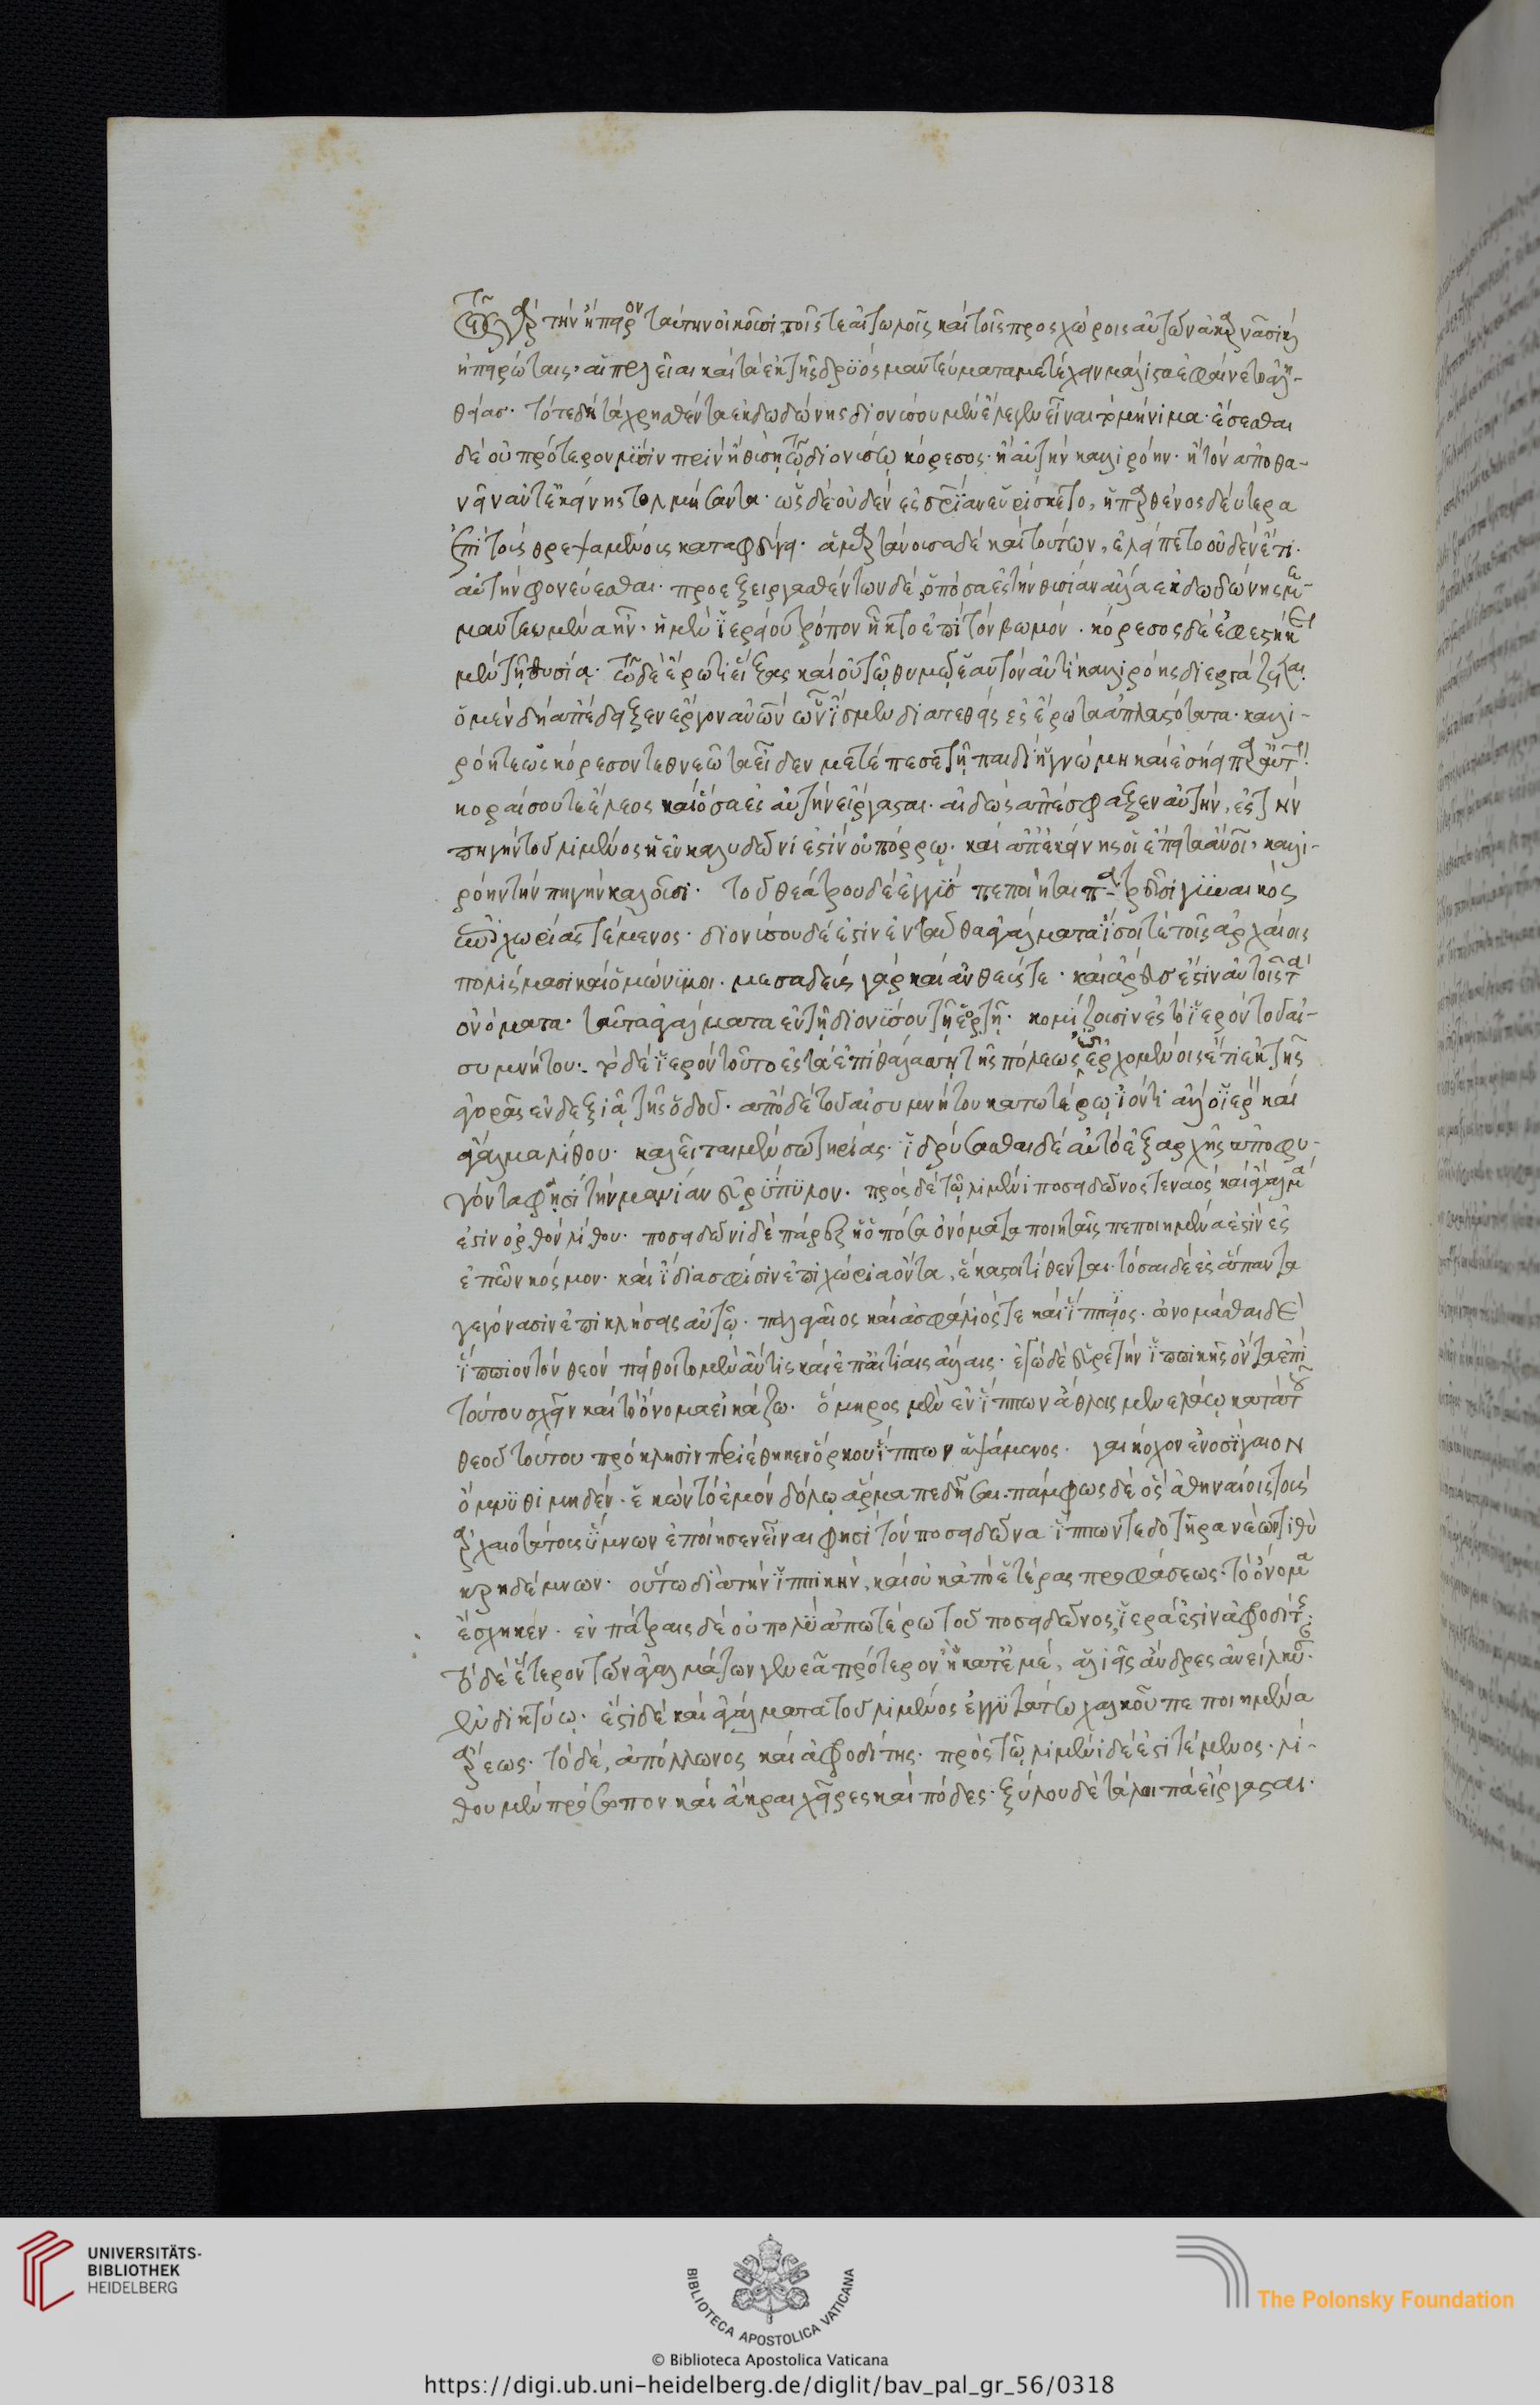 τοῖς γὰρ τὴν ἤπειρον ταύτην οἰκοῦσι τοῖς τε αἰτωλοῖς καὶ τοῖς προσχώροις αὐτῶν ἀκαρνᾶσι καὶ
ἠπειρώταις, αἱ πέλειαι καὶ τὰ ἐκ τῆς δρυὸς μαντεύματα μετέχειν μάλιστα ἐφαίνετο ἀλη-
θείας. τότε δὴ τὰ χρησθέντα ἐκ δωδώνης διονύσου μὲν ἔλεγεν εἶναι τὸ μήνιμα. ἔσεσθαι
δὲ οὐ πρότερον λύσιν πρὶν ἢ θύσῃ τῷ διονύσῳ κόρεσος. ἢ αὐτὴν καλλιρόην. ἢ τὸν ἀποθα-
νεῖν ἀντ' ἐκείνης τολμήσαντα. ὡς δὲ οὐδὲν ἐς σωτηρίαν εὑρίσκετο, ἡ παρθένος δεύτερα
ἐπὶ τοὺς θρεψαμένους καταφεύγει. ἁμαρτάνουσα δὲ καὶ τούτων, ἐλείπετο οὐδὲν ἔτι.
αὐτὴν φονεύεσθαι. προεξειργασθέντων δὲ ὁπόσα ἐς τὴν θυσίαν ἄλλα ἐκ δωδώνης με-
μαντευμένα ἦν. ἡ μὲν ἱερείου τρόπον ἦκτο ἐπὶ τὸν βωμόν. κόρεσος δὲ ἐφεστήκει
μὲν τῇ θυσίᾳ. τῷ δὲ ἔρωτι εἴξας καὶ οὐ τῷ θυμῷ ἑαυτὸν ἀντὶ καλλιρόης διεργάζεται.
ὁ μὲν δὴ ἀπέδειξεν ἔργον ἀνθρώπων ὧν ἴσμεν διατεθεὶς ἐς ἔρωτα ἀπλαστότατα. καλλι-
ρόη τε ὡς κόρεσον τεθνεῶτα εἶδεν μετέπεσε τῇ παιδὶ ἡ γνώμη καὶ ἐσῄει παρ' αὐτῇ
κοραίσου τε ἔλεος καὶ ὅσα ἐς αὐτὴν εἴργασται. αἰδὼς ἀπέσφαξεν αὑτήν, ἐς τὴν
πηγὴν τοῦ λιμένος ἣ ἐν καλυδῶνί ἐστιν οὐ πόρρω. καὶ ἀπ' ἐκείνης οἱ ἔπειτα ἄνθρωποι, καλλι-
ρόην τὴν πηγὴν καλοῦσι. τοῦ θεάτρου δὲ ἐγγὺς πεποίηται πατρεῦσι γυναικὸς
ἐπιχωρίας τέμενος. διονύσου δέ ἐστιν ἐνταῦθα ἀγάλματα ἴσοι τε τοῖς ἀρχαίοις
πολίσμασι καὶ ὁμώνυμοι. μεσαδεὺς γὰρ καὶ ἀνθεύς τε. καὶ ἀρθεύς ἐστιν αὐτοῖς τὰ
ὀνόματα. ταῦτα ἀγάλματα ἐν τῇ διονύσου τῇ ἑορτῇ. κομίζουσιν ἐς τὸ ἱερὸν τοῦ αἰ-
συμνήτου. τὸ δὲ ἱερὸν τοῦτο ἐς τὰ ἐπὶ θάλασσῃ τῆς πόλεώς ἐστιν ἐρχομένοις ἔτι ἐκ τῆς
ἀγορᾶς ἐν δεξιᾷ τῆς ὁδοῦ. ἀπὸ δὲ τοῦ αἰσυμνήτου κατωτέρω ἰόντι ἄλλο ἱερὸν καὶ
ἄγαλμα λίθου. καλεῖται μὲν σωτηρίας. ἱδρύσασθαι δὲ αὐτὸ ἐξ ἀρχῆς ἀποφυ-
γόντα φησὶ τὴν μανίαν εὐρύπυλον. πρὸς δὲ τῷ λιμένι ποσειδῶνός τε ναὸς καὶ ἄγαλμά
ἐστιν ὀρθὸν λίθου. ποσειδῶνι δὲ πάρεξ ἢ ὁπόσα ὀνόματα ποιηταῖς πεποιημένα ἐστὶν ἐς
ἐπῶν κόσμον. καὶ ἰδίᾳ σφίσιν ἐπιχώρια ὄντα, ἕκαστοι τίθενται. τόσαι δὲ ἐς ἅπαντα
γεγόνασιν ἐπικλήσεις αὐτῷ. πελαγαῖος καὶ ἀσφάλιός τε καὶ ἵππειος. ὠνομάσθαι δὲ
ἵππιον τὸν θεὸν πείθοιτο μὲν ἄν τις καὶ ἐπ' αἰτίαις ἄλλαις. ἐγὼ δὲ εὑρετὴν ἱππικῆς ὄντα ἐπὶ
τούτου σχεῖν καὶ τὸ ὄνομα εἰκάζω. ὅμηρος μὲν ἐν ἵππων ἄθλοις μενελάῳ κατὰ τοῦ
θεοῦ τούτου πρόκλησιν περιέθηκεν ὅρκου ἵππων ἁψάμενος. γαιήοχον ἐνοσίγαιον
ὄμνυθι μηδέν. ἑκὼν τὸ ἐμὸν δόλῳ ἅρμα πεδῆσαι. πάμφως δὲ ὃς ἀθηναίοις τοὺς
ἀρχαιοτάτους ὕμνων ἐποίησεν εἶναί φησι τὸν ποσειδῶνα ἵππων τε δοτῆρα νεῶν τ' ἰθὺ
κρηδέμνων. οὕτω διὰ τὴν ἱππικήν, καὶ οὐκ ἀπὸ ἑτέρας προφάσεως. τὸ ὄνομα
ἔσχηκεν. ἐν πάτραις δὲ οὐ πολὺ ἀπωτέρω τοῦ ποσειδῶνος, ἱερά ἐστιν ἀφροδίτης.
τὸ δὲ ἕτερον τῶν ἀγαλμάτων γενεᾷ πρότερον ἢ κατ' ἐμέ, ἁλιεῖς ἄνδρες ἀνείλκυσαν
ἐν δικτύῳ. ἔστι δὲ καὶ ἀγάλματα τοῦ λιμένος ἐγγυτάτω χαλκοῦ πεποιημένα
ἄρεως. τὸ δέ, ἀπόλλωνος καὶ ἀφροδίτης. πρὸς τῷ λιμένι δέ ἐστι τέμενος. λί-
θου μὲν πρόσωπον καὶ ἄκραι χεῖρες καὶ πόδες. ξύλου δὲ τὰ λοιπὰ εἴργασται.
UNIVERSITÄTS-
BIBLIOTHEK
HEIDELBERG
BIBLIOTECA APOSTOLICA VATICANA
The Polonsky Foundation
© Biblioteca Apostolica Vaticana
https://digi.ub.uni-heidelberg.de/diglit/bav_pal_gr_56/0318